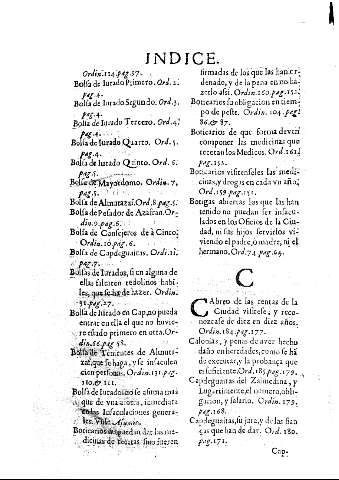 INDICE.
Ordin.124.pag.87.
Bolsa de Iurado Primero. Ord.2.
pag.4.
Bolsa de Iurado Segundo. Ord.3.
pag.4.
Bolsa de Iurado Tercero. Ord.4.
pag.4.
Bolsa de Iurado Quarto. Ord.5.
pag.4.
Bolsa de Iurado Quinto. Ord.6.
pag.5.
Bolsa de Mayordomo. Ordin.7.
pag.5.
Bolsa de Almutazaf. Ord.8.pag.5.
Bolsa de Pesador de Azafran. Or-
din.9.pag.6.
Bolsa de Consejeros de à Cinco.
Ordin.10.pag.6.
Bolsa de Capdeguaitas. Ordi.11.
pag.7.
Bolsas de Iurados, si en alguna de
ellas faltaren redolinos habi-
les, que se ha de hazer. Ordin.
pag.27.
Bolsa de Iurado en Cap, no pueda
entrar en ella el que no huvie-
re estado primero en otra. Or-
din.56.pag.58.
Bolsa de Tenientes de Almuta-
zaf, que se haga, y se insaculen
cien personas. Ordin.151.pag.
110.&111.
Bolsa de Iurado no se assuma mas
que de una a otra, inmediata
en las Insaculaciones genera-
les. Vide
Boticarios no puedan dar las me-
dicinas de recetas sino fueren
firmadas de los que las han or-
denado, y de la pena en no ha-
zerlo assi. Ordin.160.pag.152.
Boticarios su obligacion en tiem-
po de peste. Ordin.104.pag.
86.&87.
Boticarios de que forma deven
componer las medicinas que
recetan los Medicos. Ord.161.
pag.152.
Boticarios visitenseles las medi-
cinas, y drogas en cada vn año.
Ord.159.pag.151.
Botigas abiertas los que las han
tenido no puedan ser insacu-
lados en los Oficios de la Ciu-
dad, ni sus hijos servirlos vi-
viendo el padre, ò madre, ni el
hermano. Ord.74.pag.64.
C
CAbreo de las rentas de la
Ciudad visitese, y reco-
nozcase de diez en diez años.
Ordin.184.pag.177.
Calonias, y penas de aver hecho
daño en heredades, como se há
de executar, y la probança que
es suficiente. Ord.185.pag.179.
Capdeguaitas del Zalmedina, y
Lugarteniente, el numero, obli-
gacion, y salario. Ordin.179.
pag.168.
Capdeguaitas, su jura, y de las fian-
ças que han de dar. Ord.180.
pag.171.
Cap-